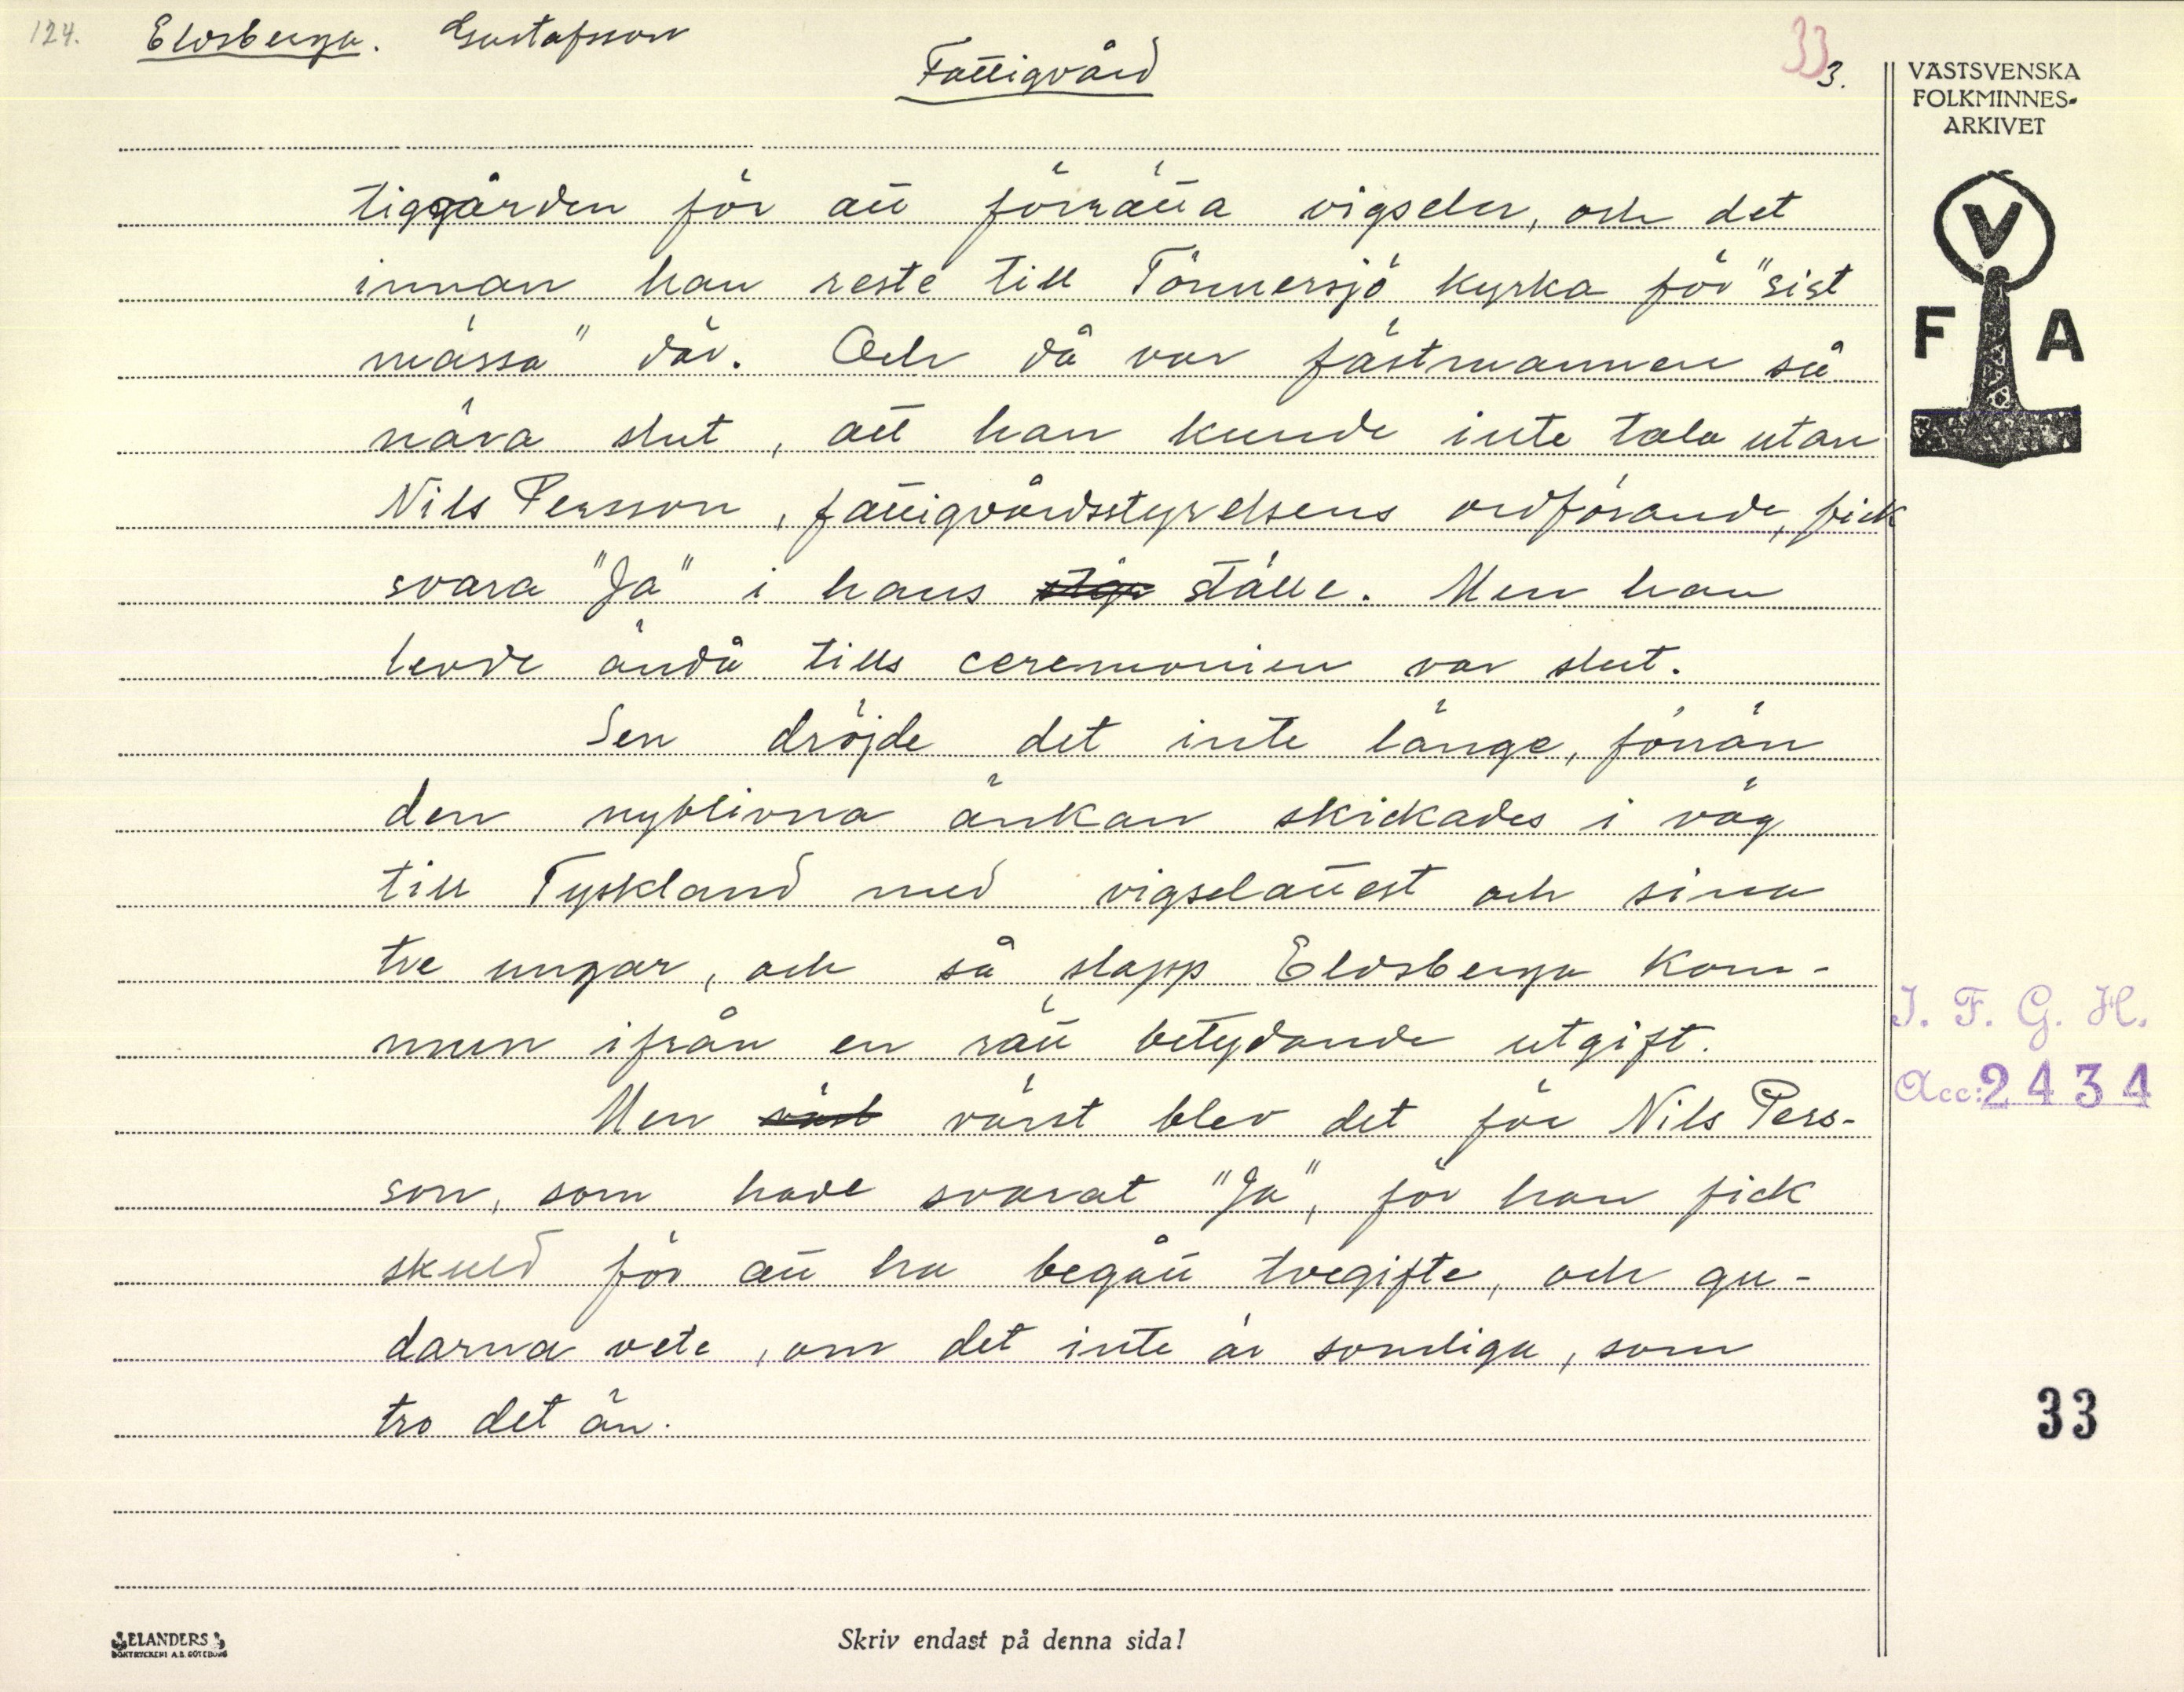 124. Eldsberga. Gustafsson
Fattigvård
33
3.
VÄSTSVENSKA
FOLKMINNES-
ARKIVET
V
F A
tiggården för att förrätta vigseln, och det
innan han reste till Tönnersjö kyrka för "sist
mässa" där. Och då var fästmannen så
nära slut, att han kunde inte tala utan
Nils Persson, fattigvårdsstyrelsens ordförande, fick
svara "Ja" i hans ställe. Men han
levde ändå tills ceremonien var slut.
Sen dröjde det inte länge, förrän
den nyblivna änkan skickades i väg
till Tyskland med vigselattest och sina
tre ungar, och så slapp Eldsberga kom-
mun ifrån en rätt betydande utgift.
Men värst blev det för Nils Pers-
son, som hade svarat "Ja", för han fick
skuld för att ha begått tvegifte, och gu-
darna vete, om det inte är somliga, som
tro det än.
I. F. G. H.
Acc: 2434
33
ELANDERS
BOKTRYCKERI A.B. GÖTEBORG
Skriv endast på denna sida!